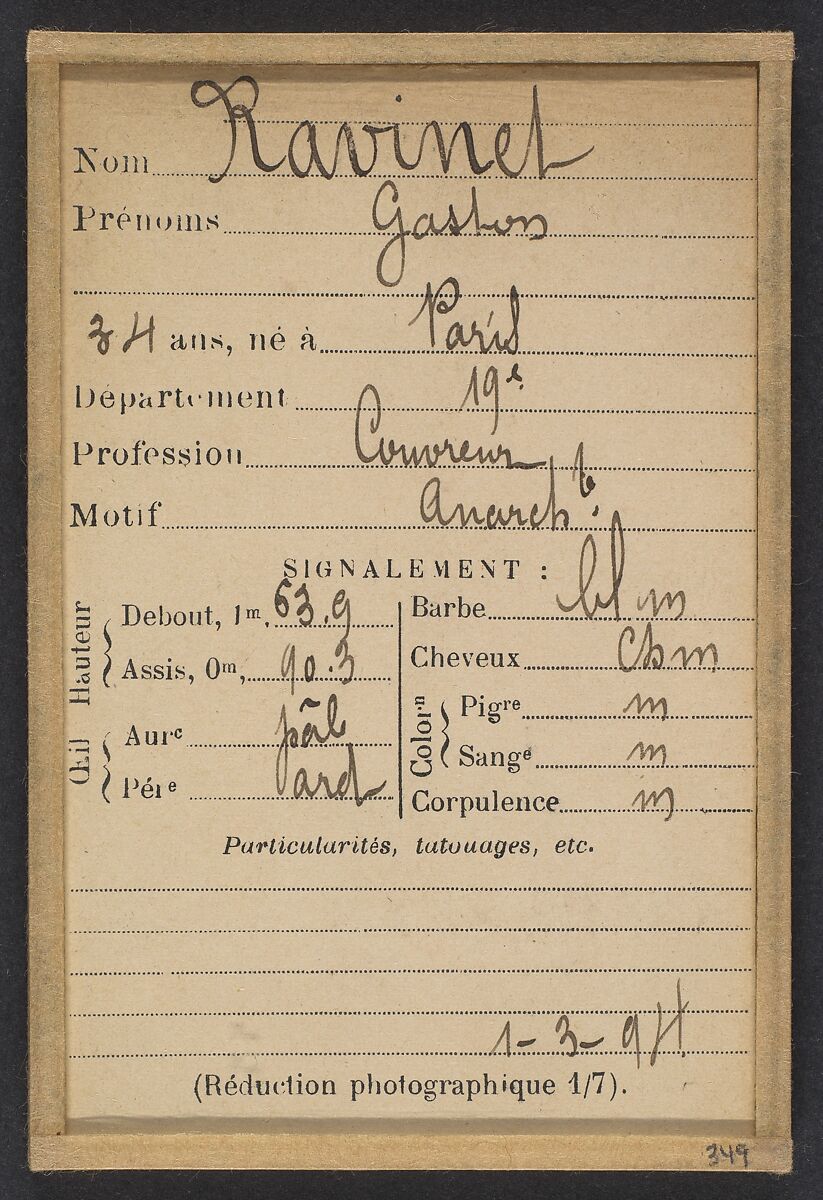 Nom Ravinet
Prénoms Gaston
34 ans, né à Paris
Département 19e
Profession Couvreur
Motif Anarchte.
SIGNALEMENT :
Hauteur
Debout, 1m, 63.9
Assis, 0m, 90.3
Œil
Aurc pâl
Pére ard
Barbe bl m
Cheveux Ch m
Colorn
Pigre m
Sange m
Corpulence m
Particularités, tatouages, etc.
1-3-94
(Réduction photographique 1/7).
349